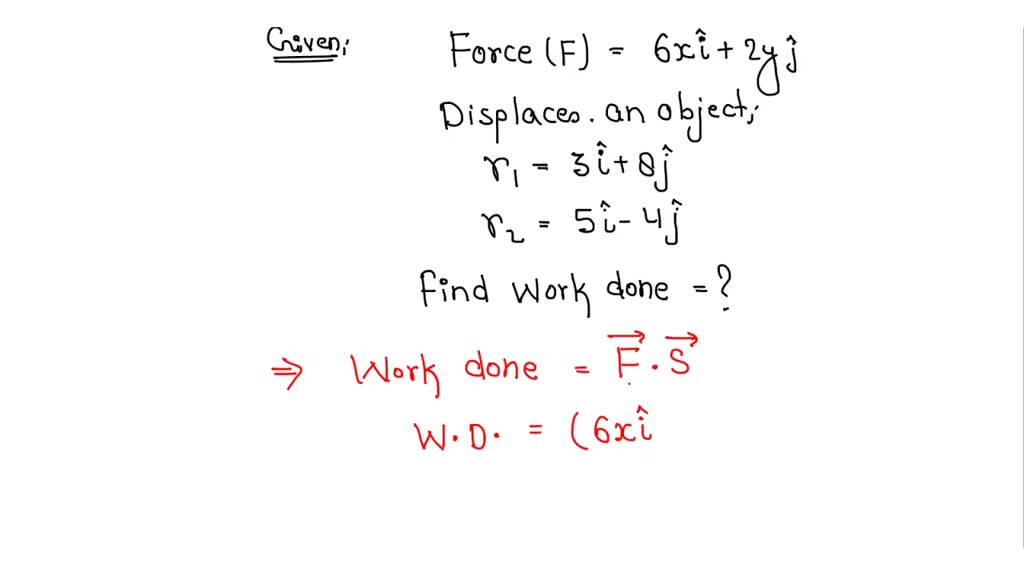 Given;
Force (F) = 6xî + 2yĵ
Displaces. an object;
r₁ = 3î + 8ĵ
r₂ = 5î - 4ĵ
find work done = ?
⇒ Work done = F⃗ . S⃗
W.D. = (6xî